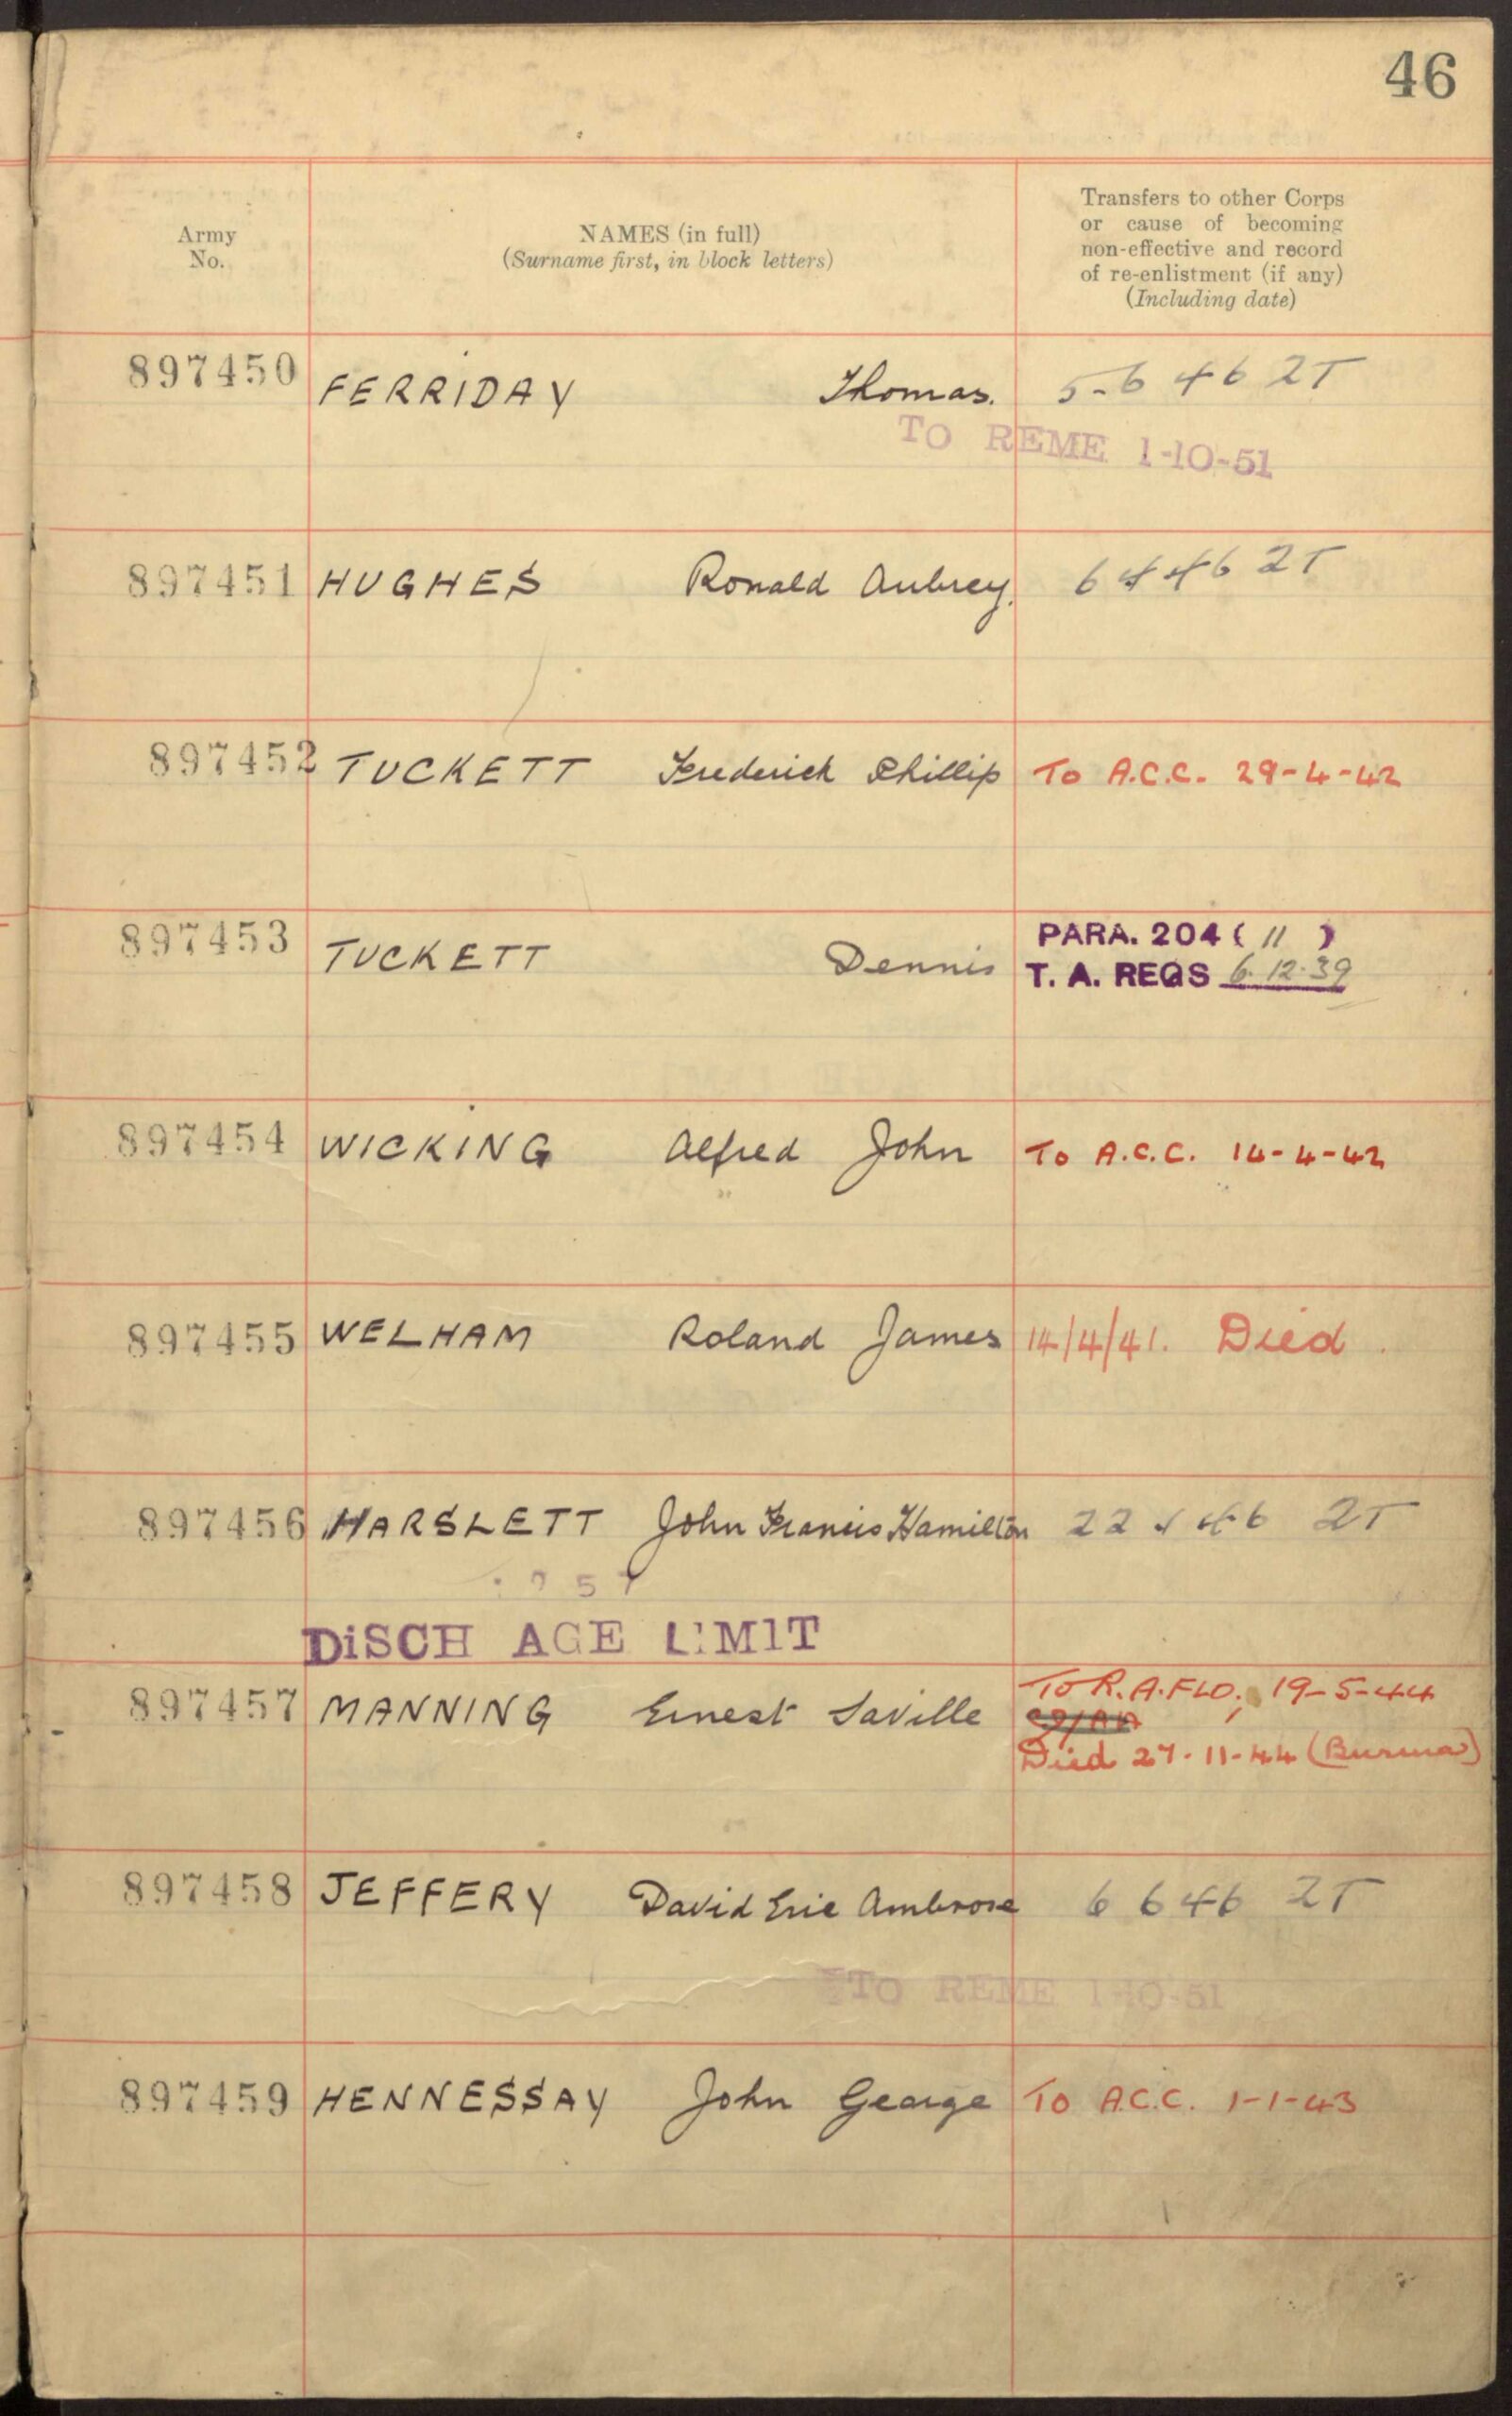 46
Army
No.
NAMES (in full)
(Surname first, in block letters)
Transfers to other Corps
or cause of becoming
non-effective and record
of re-enlistment (if any)
(Including date)
897450 FERRIDAY Thomas. 5-6 46 2T
TO REME 1-10-51
897451 HUGHES Ronald Aubrey. 6 4 46 2T
897452 TUCKETT Frederick Phillip To A.C.C. 29-4-42
897453 TUCKETT Dennis PARA. 204 ( 11 )
T. A. REGS 6.12.39
897454 WICKING Alfred John To A.C.C. 14-4-42
897455 WELHAM Roland James 14/4/41. Died.
897456 HARSLETT John Francis Hamilton 22 46 2T
DISCH AGE LIMIT
897457 MANNING Ernest Saville To R.A.FLD. 19-5-44
Died 27-11-44 (Burma)
897458 JEFFERY David Eric Ambrose 6 6 46 2T
TO REME 1-10-51
897459 HENNESSAY John George To A.C.C. 1-1-43